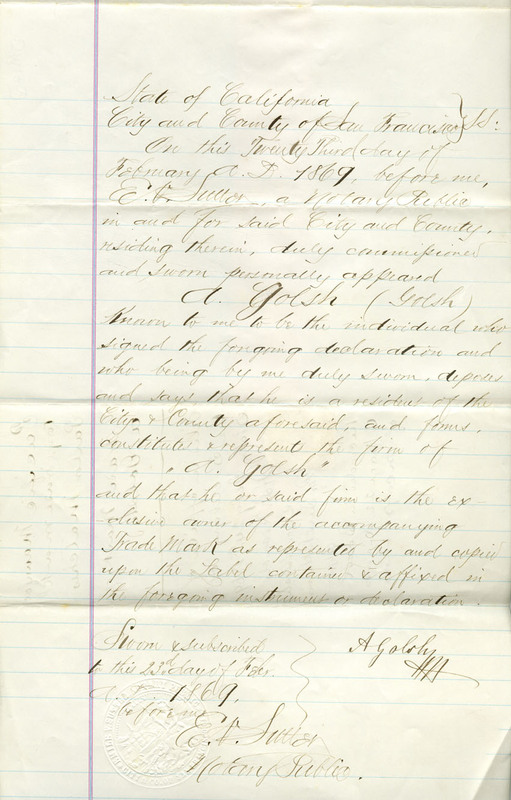 State of California
City and County of San Francisco } SS:
On this Twenty Third day of
February A.D. 1869, before me,
E. V. Sutter, a Notary Public
in and for said City and County,
residing therein, duly commissioned
and sworn personally appeared
A. Golsh (Golsh)
Known to me to be the individual who
signed the foregoing declaration and
who being by me duly sworn, deposes
and says that he is a resident of the
City & County aforesaid, and forms,
constitutes & represents the firm of
"A. Golsh"
and that he or said firm is the ex-
-clusive owner of the accompanying
Trade Mark as represented by and copied
upon the Label contained & affixed in
the foregoing instrument or declaration.
Sworn & subscribed
to this 23d day of Feb.
A.D. 1869,
before me
E. V. Sutter
Notary Public.
A Golsh